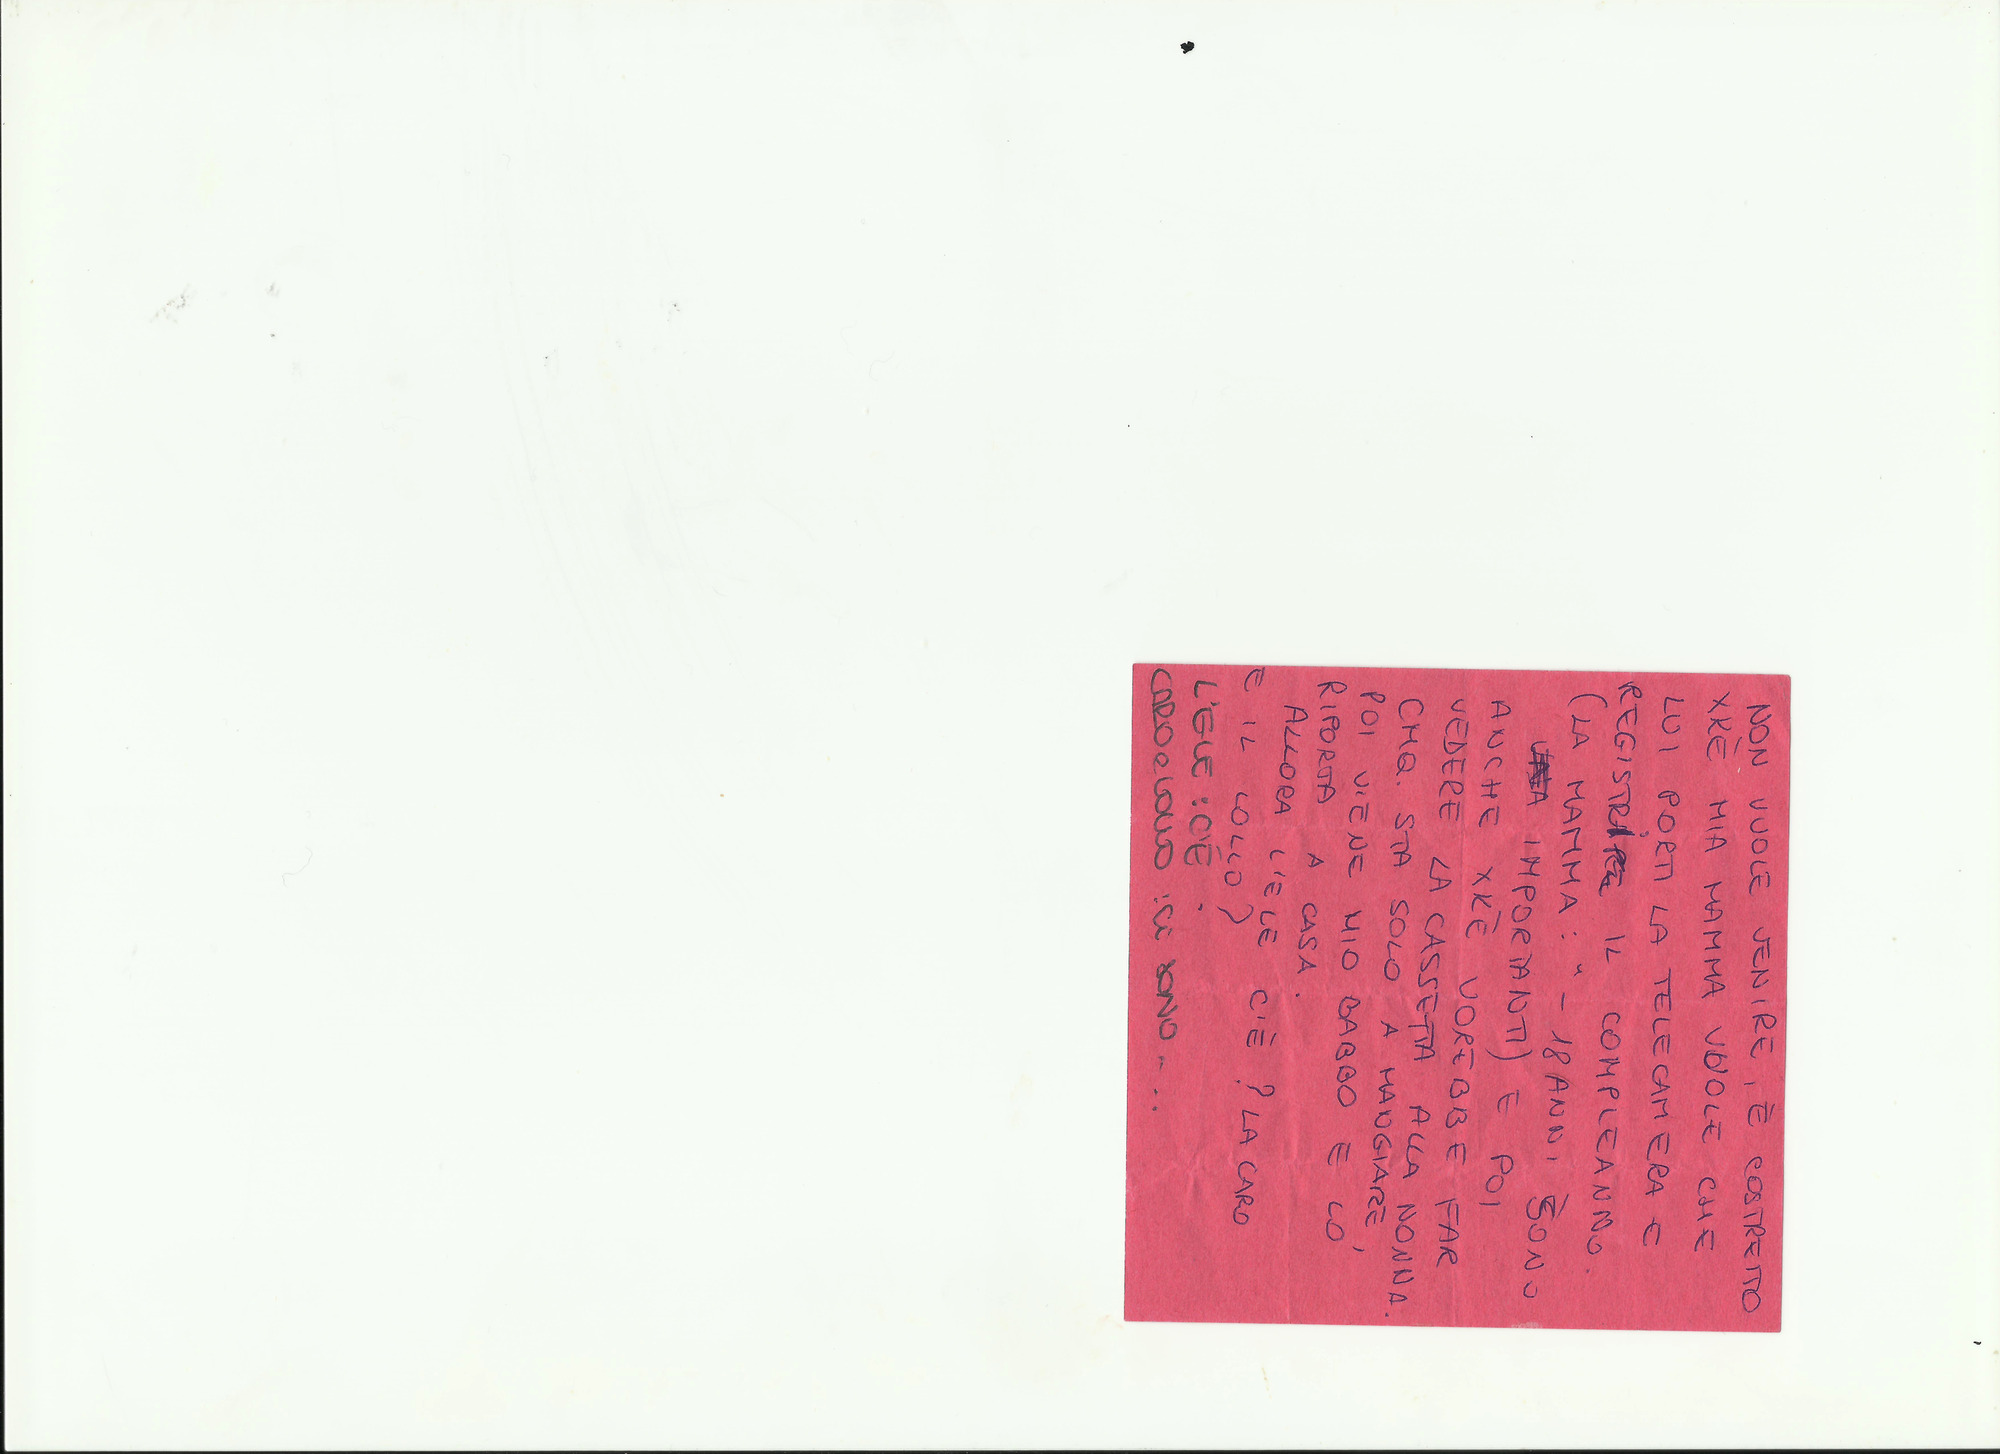 NON VUOLE VENIRE, È COSTRETTO
XKÈ MIA MAMMA VUOLE CHE
LUI PORTI LA TELECAMERA E
REGISTRI IL COMPLEANNO.
(LA MAMMA: " - 18 ANNI SONO
IMPORTANTI) E POI
ANCHE XKÈ VOREBBE FAR
VEDERE LA CASSETTA ALLA NONNA.
CMQ. STA SOLO A MANGIARE,
POI VIENE MIO BABBO E LO
RIPORTA A CASA.
ALLORA L'ELE C'È? LA CARO
E IL LOLLO?
L'ELE: C'È.
CARO e LOLLO: CI SONO...